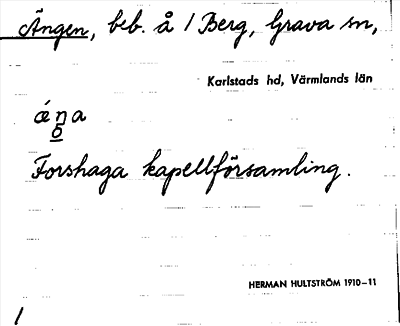 Ängen, beb. å 1 Berg, Grava sn,
Karlstads hd, Värmlands län
ǽŋa
ò
Forshaga kapellförsamling.
HERMAN HULTSTRÖM 1910–11